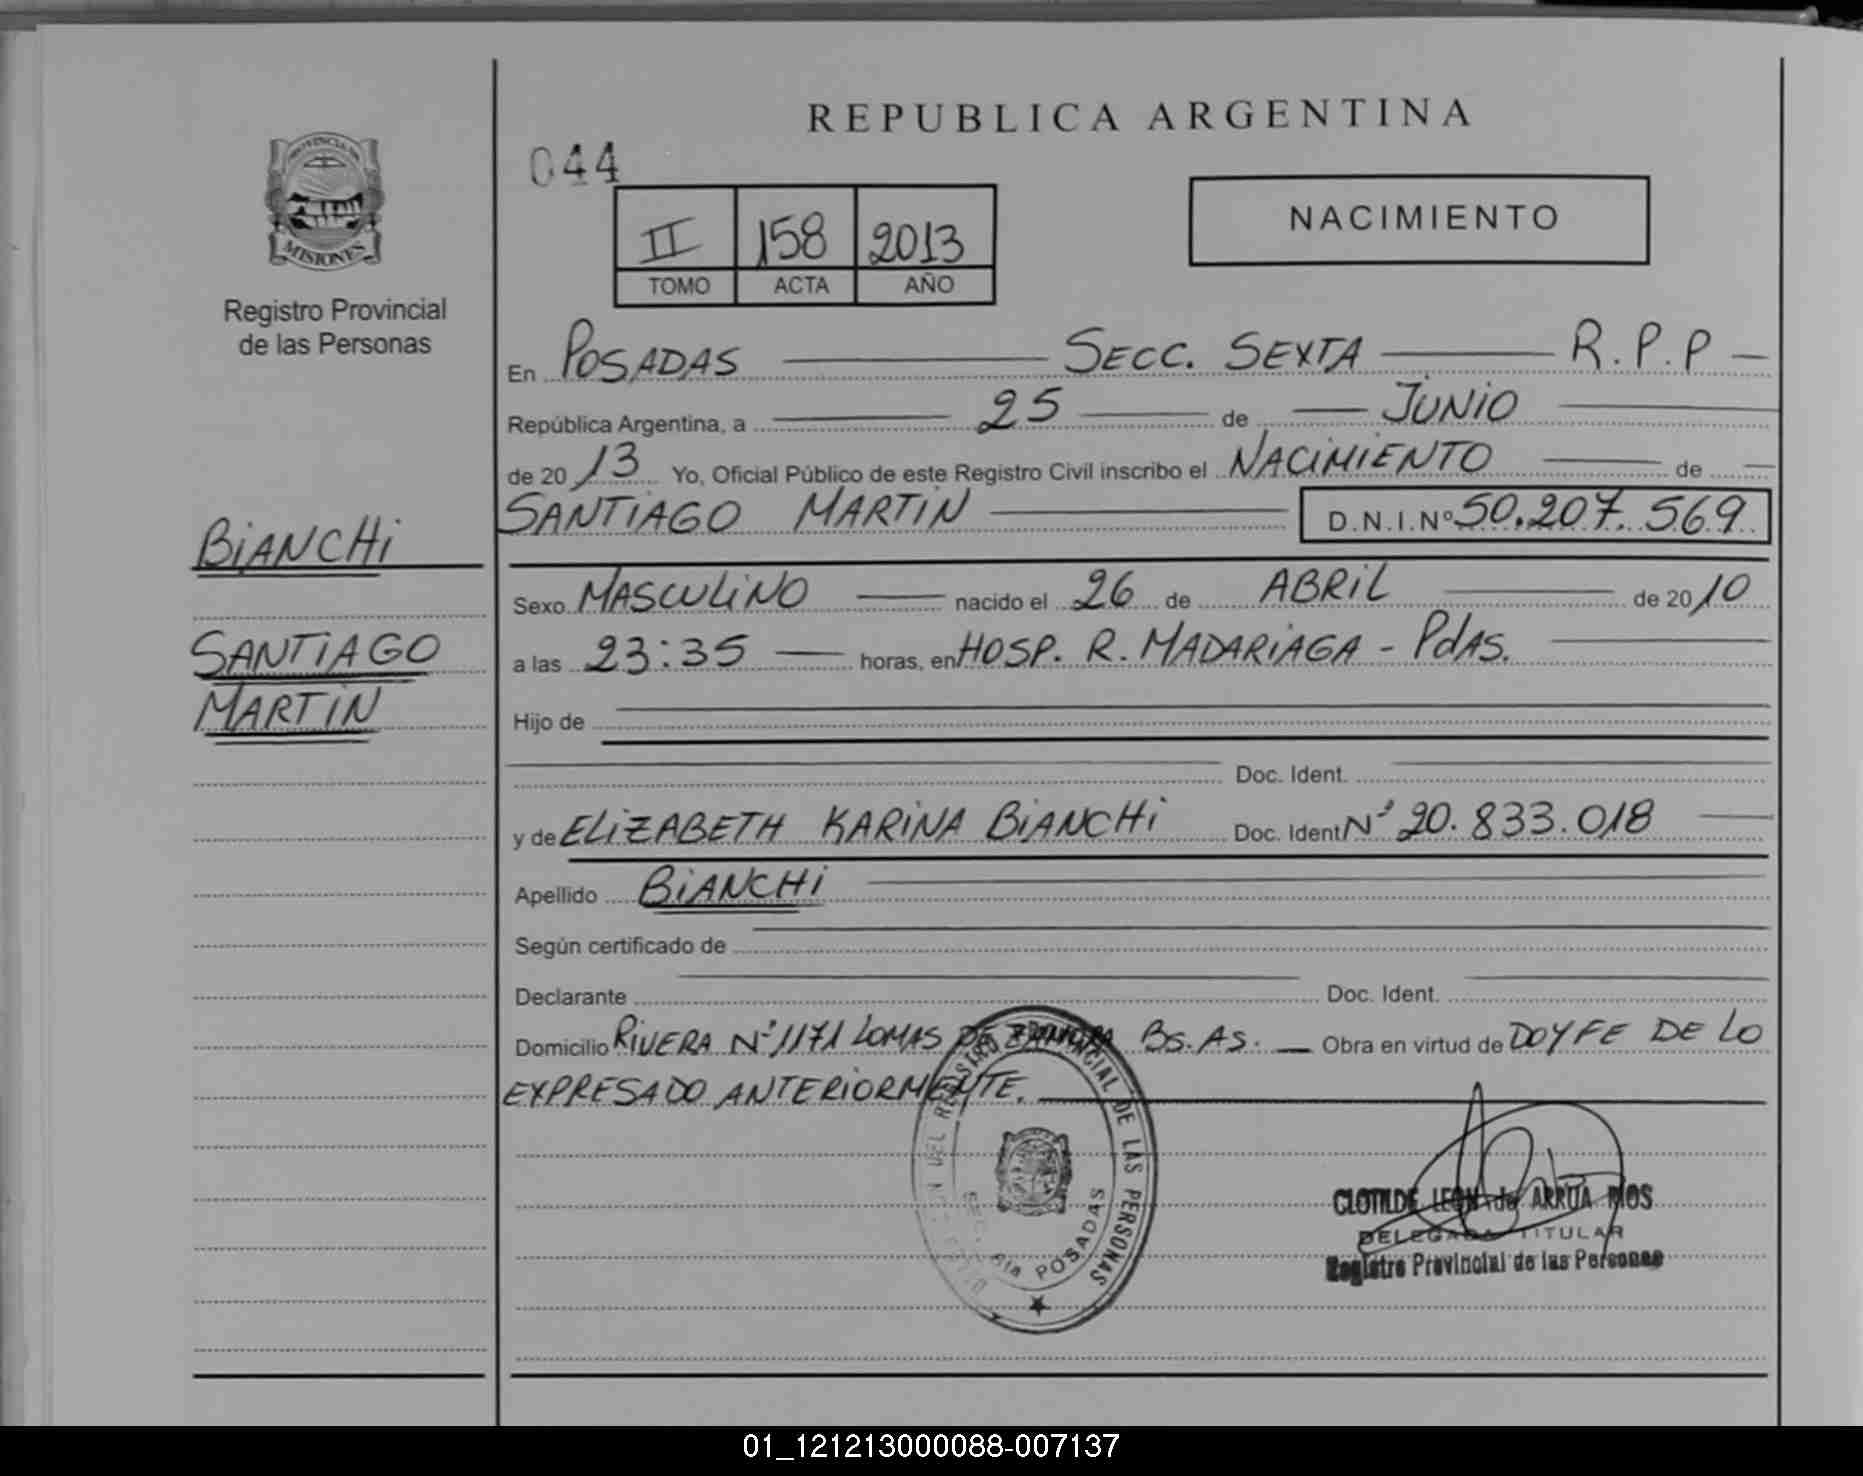 REPUBLICA ARGENTINA
044
NACIMIENTO
II 158 2013
TOMO ACTA AÑO
PROVINCIA DE
MISIONES
Registro Provincial
de las Personas
En POSADAS SECC. SEXTA R.P.P
República Argentina, a 25 de JUNIO
de 2013 Yo, Oficial Público de este Registro Civil inscribo el NACIMIENTO de
SANTIAGO MARTIN D.N.I.Nº 50.207.569
BIANCHI
SANTIAGO
MARTIN
Sexo MASCULINO nacido el 26 de ABRIL de 2010
a las 23:35 horas, en HOSP. R. MADARIAGA - PdAS.
Hijo de
Doc. Ident.
y de ELIZABETH KARINA BIANCHI Doc. Ident Nº 20.833.018
Apellido BIANCHI
Según certificado de
Declarante Doc. Ident.
Domicilio RIVERA Nº 1171 LOMAS DE ZAMORA BS. AS. Obra en virtud de DOY FE DE LO
EXPRESADO ANTERIORMENTE.
DEL REGISTRO PROVINCIAL DE LAS PERSONAS
SECC. 6ta POSADAS
CLOTILDE LEON de ARRUA RIOS
DELEGADA TITULAR
Registro Provincial de las Personas
01_121213000088-007137